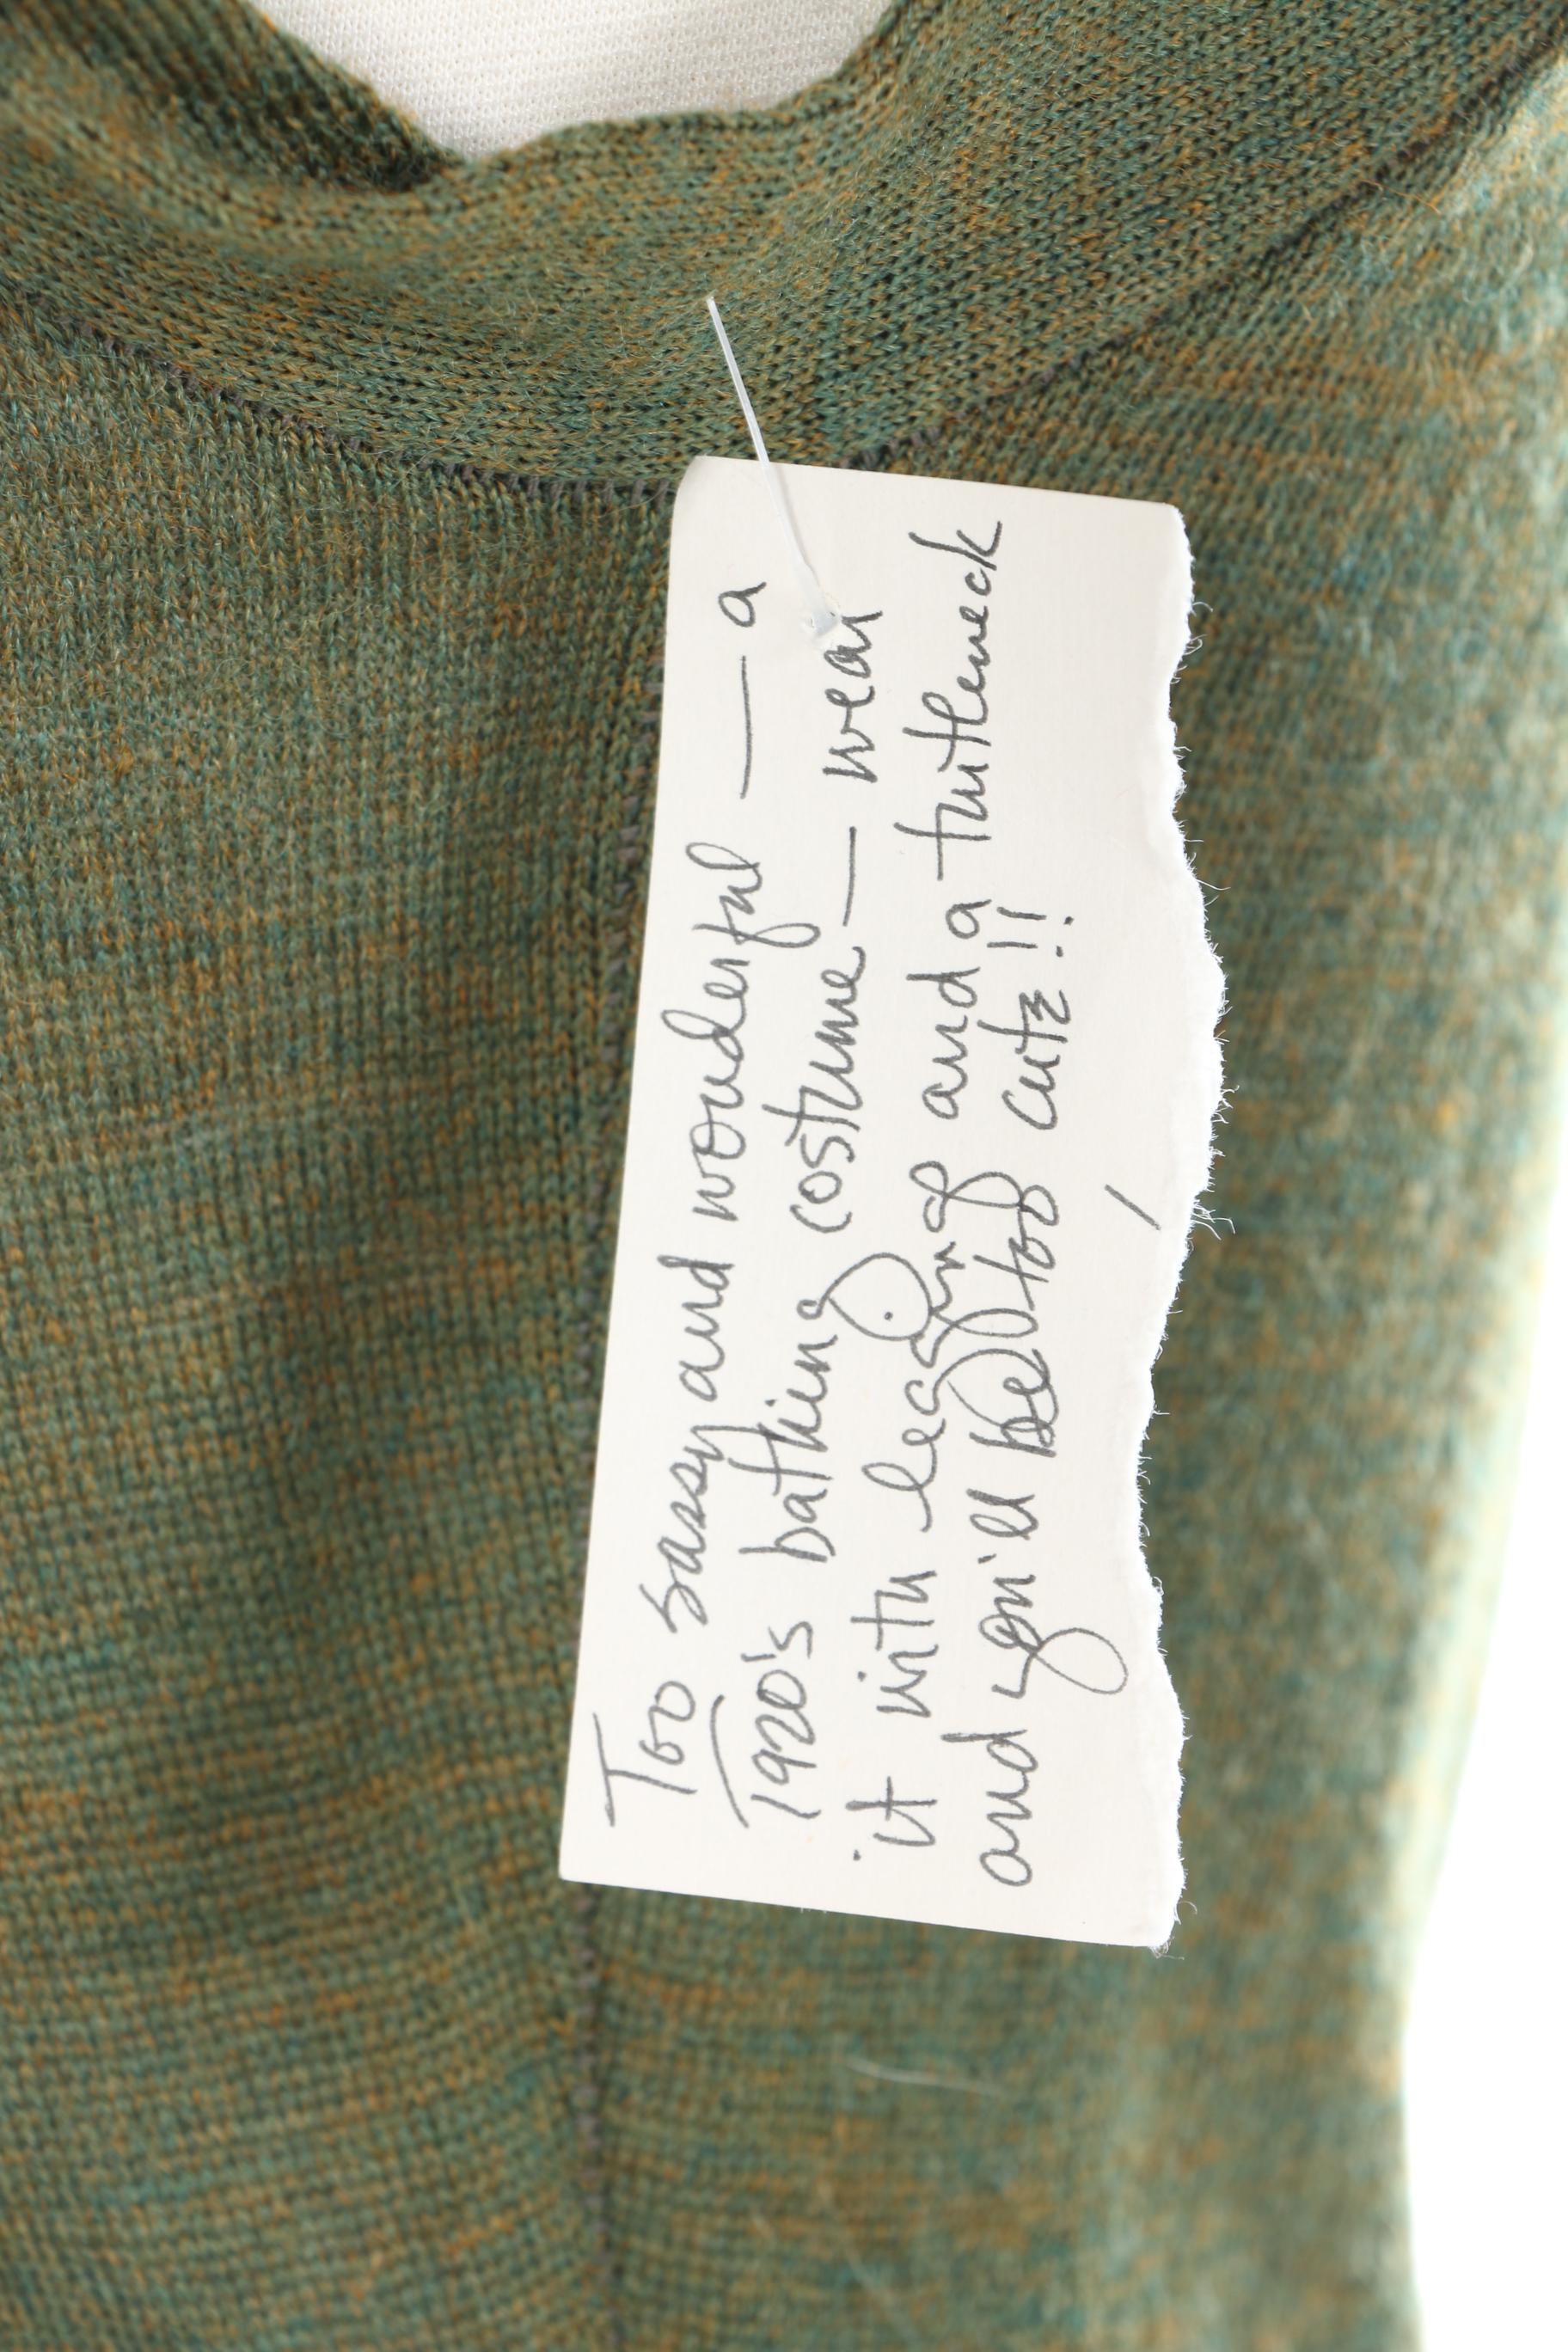 Too sassy and wonderful — a
1920's bathing costume — wear
it with leggings and a turtleneck
and you'll be too cute!!